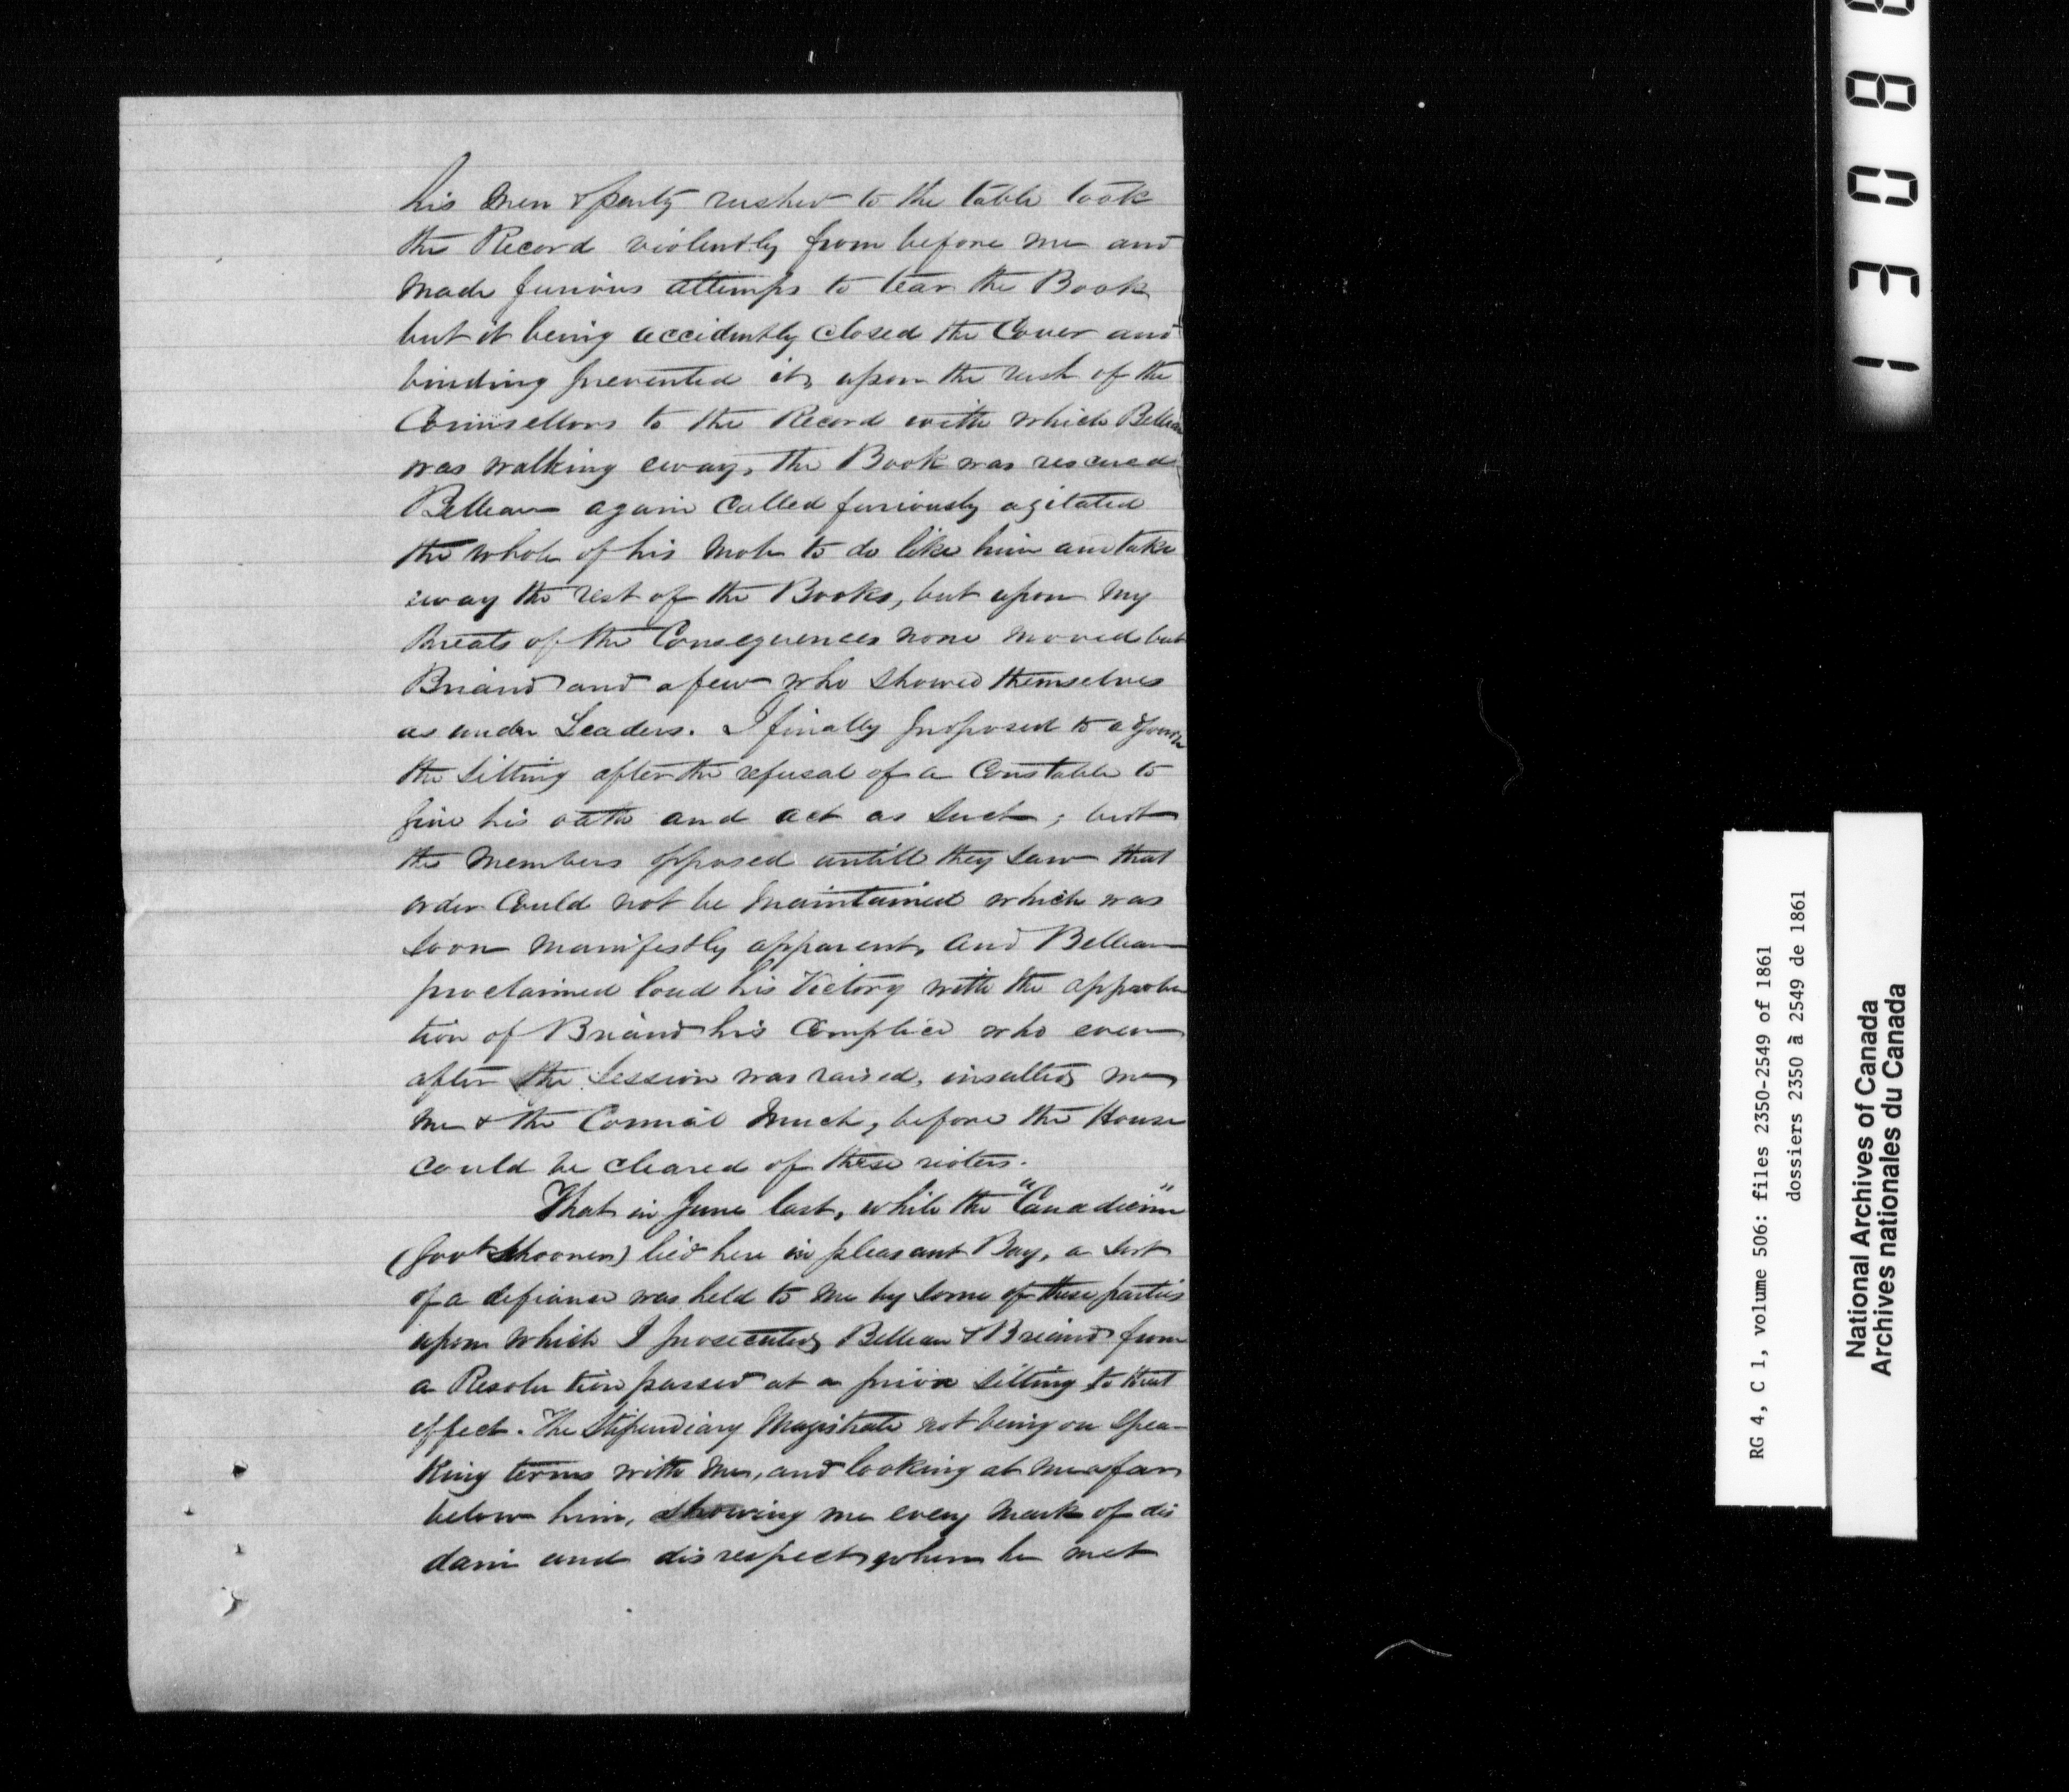 his men & party rushed to the table took
the Record violently from before me and
made furious attemps to tear the Book
but it being accidently closed the Cover and
binding prevented it, upon the rush of the
Counsellors to the Record with which Belleau
was walking away, the Book was rescued
Belleau again called furiously agitated
the whole of his mob to do like him and take
away the rest of the Books, but upon my
threats of the Consequences none moved but
Briand and a few who showed themselves
as under Leaders. I finally proposed to adjourn
the Sitting after the refusal of a Constable to
give his oath and act as such; but
the members opposed untill they saw that
order Could not be maintained which was
soon manifestly apparent, and Belleau
proclaimed loud his Victory with the approba
tion of Briand his Complice who even
after the Session was raised, insulted me
me & the Council much, before the House
could be cleared of these rioters.
That in June last, while the "Canadienne"
(Govt Shooner) lied here in pleasant Bay, a sort
of a defiance was held to me by some of these parties
upon which I prosecuted Belleau & Briand from
a Resolution passed at a prior Sitting to that
effect. The Stipendiary Magistrate not being on Spea-
king terms with me, and looking at me as far
below him, showing me every mark of dis
dain and disrespect when he met
13088
RG 4, C 1, volume 506: files 2350-2549 of 1861
dossiers 2350 à 2549 de 1861
National Archives of Canada
Archives nationales du Canada